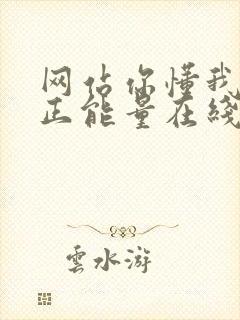 网站你懂我
正能量在线
雲水游